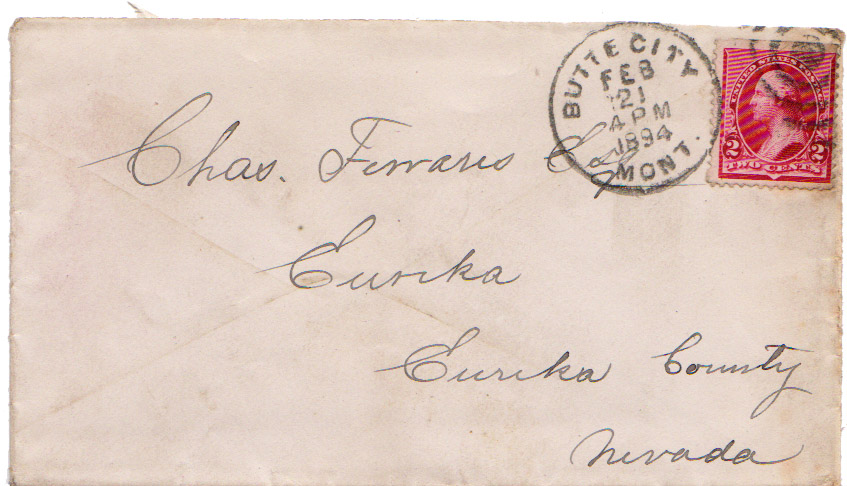 BUTTE CITY
FEB
21
4 PM
1894
MONT.
UNITED STATES POSTAGE
2 2
TWO CENTS
Chas. Ferraris
Eureka
Eureka County
Nevada